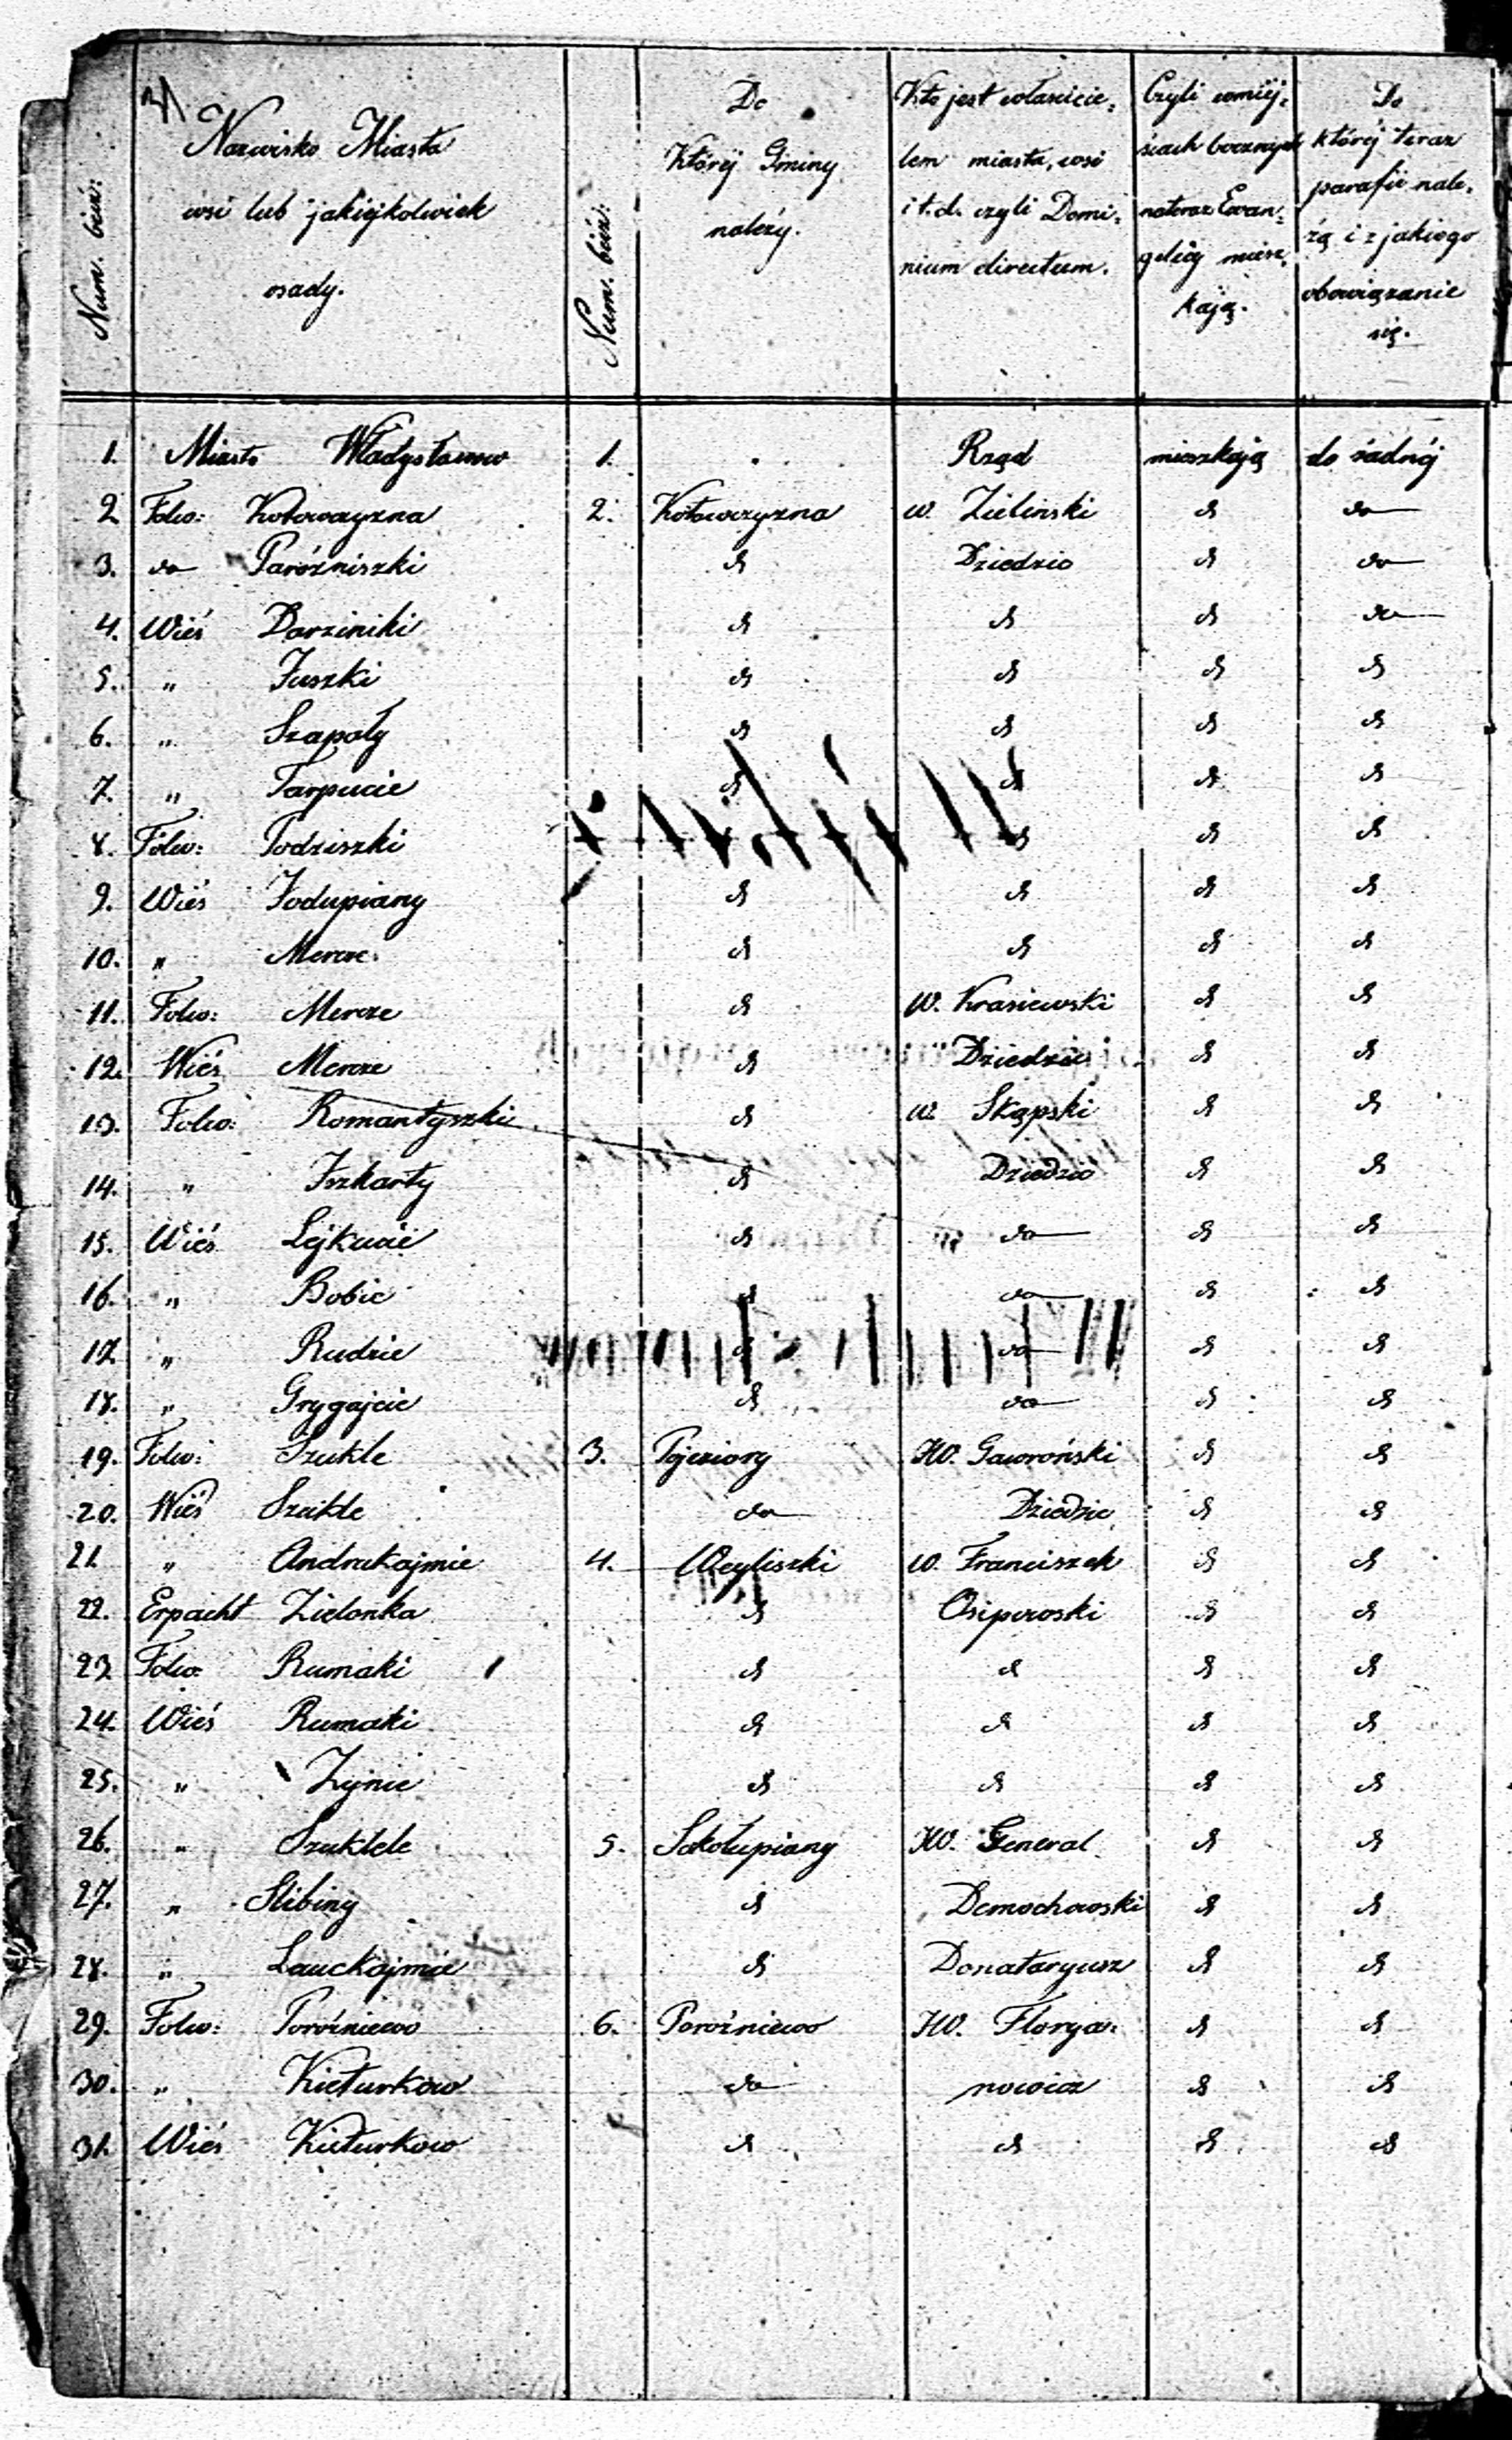 Num. bież:
Nazwisko Miasta
wsi lub jakiéjkolwiek
osady.
Num. bież:
Do
Któréj Gminy
należy.
Kto jest właścicie,
lem miasta, wsi
i t. d. czyli Domi,
nium directum.
Czyli w miéj,
scach
nateraz Ewan,
gelicy miesz,
kają.
Do
któréj teraz
parafii nale,
żą i z jakiego
obowiązanie
się.
1. Miasto Władysławow 1. Rząd mieszkają do żadnéj
2 Folw: Kotowczyzna 2. Kotowczyzna W. Zieliński do do
3. do Paróżniszki do Dziedzic do do
4. Wieś Darziniki do do do do
5. " Juszki do do do do
6. " Szapoły do do do do
7. " Tarpucie do do do do
8. Folw: Jodziszki do do do
9. Wieś Jodupiany do do do do
10. " Mercze do do do do
11. Folw: Mercze do W. Krasiewski do do
12. Wieś Mercze do Dziedzic do do
13. Folw: Romantyszki do W. Skąpski do do
14. " Iszkarty do Dziedzic do do
15. Wieś Lejkucie do do do do
16. " Bobie do do do do
17. " Rudzie do do do do
18. " Grygajcie do do do do
19. Folw: Szukle 3. Pojeziory JW. Gawroński do do
20. Wieś Szukle do Dziedzic do do
21. " Andrakajmie 4. Weyliszki W. Franciszek do do
22. Erpacht Zielonka do Osipowski do do
23. Folw: Rumaki do do do do
24. Wieś Rumaki do do do do
25. " Żynie do do do do
26. " Szuklele 5. Sakołupiany JW. Generał do do
27. " Slibiny do Demochowski do do
28. " Lauckajmie do Donataryusz do do
29. Folw: Poróżniewo 6. Poróżniewo JW. Florya: do do
30. " Kieturkow do nowicz do do
31. Wieś Kieturkow do do do do